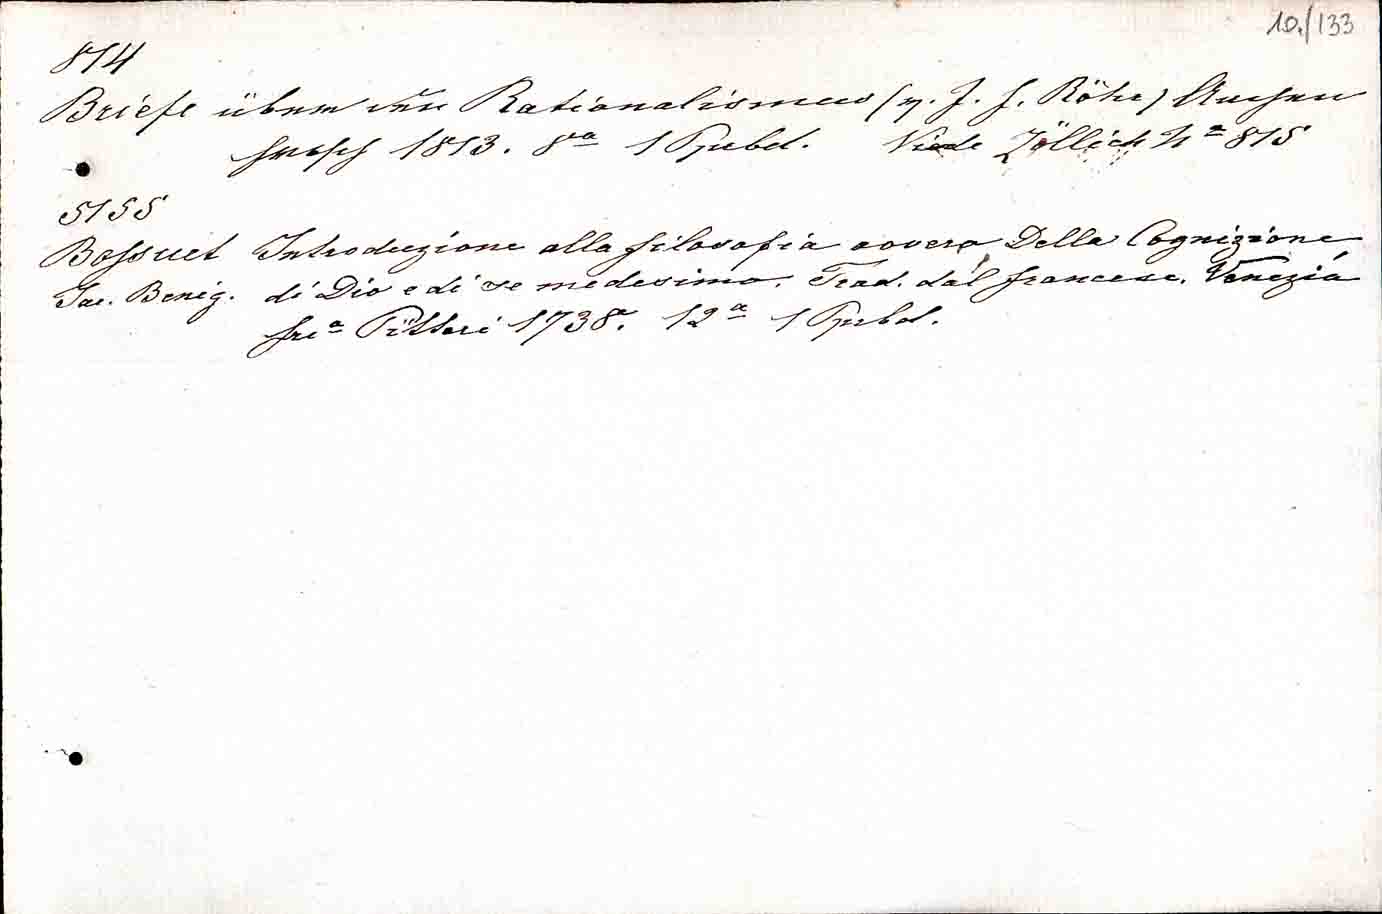 10./133
814
Briefe über den Rationalismus (v. J. F. Röhr) Aachen
Frosch 1813. 8° 1 Ppbd. Vide Zöllich N° 815
5155
Bossuet Introduzione alla filosofia ovvero Della Cognizione
Jac. Benig. di Dio e di se medesimo. Trad. dal francese. Venezia
Fr. Pitteri 1738. 12° 1 Ppbd.